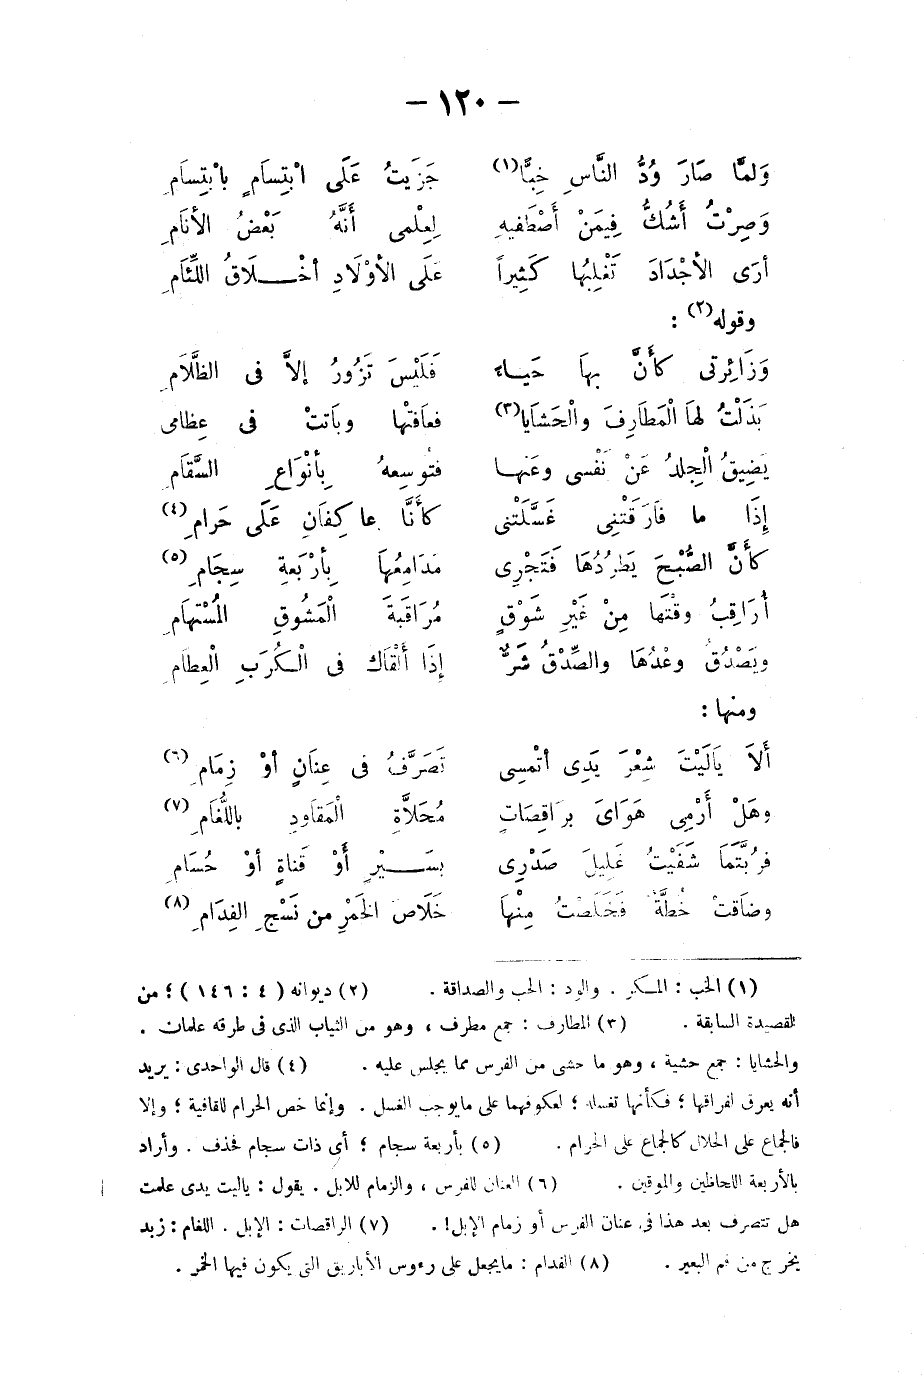 — ١٢٠ —
وَلمَّا صَارَ وُدُّ النَّاسِ خِبًّا(١) جَزَيتُ عَلَى ابْتِسَامٍ بابْتِسَامِ
وَصِرْتُ أَشُكُّ فِيمَنْ أَصْطَفيهِ لِعِلْمى أَنَّهُ بَعْضُ الأنَامِ
أرَى الأجْدَادَ تَغْلِبُها كَثِيراً عَلَى الأوْلَادِ أخْـلَاقُ اللِّئَامِ
وقوله(٢) :
وَزَائِرتى كأَنَّ بهاَ حَيـاء فَلَيْسَ تَزُورُ إلاَّ فى الظَّلَامِ
بَذَلْتُ لهَا الْمَطَارِفَ والْحَشَايا(٣) فعافَتْها وبَاتتْ فى عِظامى
يَضِيقُ الْجِلدُ عَنْ نَفْسى وعَنها فتُوسِعهُ بِأنْوَاعِ السَّقَامِ
إذَا ما فارَقَتْنِى غَسَّلَتْنى كأَنَّا عاكِفَانِ عَلَى حَرامِ(٤)
كأَنَّ الصُّبْحَ يَطْرُدُهَا فَتَجْرِى مَدَامِعُهاَ بِأرْبَعَةِ سِجَامِ(٥)
أُرَاقِبُ وقْتَها مِنْ غَيْرِ شَوْقٍ مُرَاقَبَةَ الْمَشُوقِ المُسْتهاَمِ
ويَصْدُقُ وعْدُهَا والصِّدْقُ شَرٌّ إِذَا أَلْقَاكَ فى الْـكُرَبِ الْعِظَامِ
ومنها :
أَلاَ يَالَيْتَ شِعْرَ يَدِى أتُمْسِى تَصَرَّفُ فى عِنَانٍ أوْ زِمَامِ(٦)
وهَلْ أَرْمِى هَوَاىَ برَاقِصَاتٍ مُحَلاَّةِ الْمَقَاودِ باللُّغَامِ(٧)
فرُبَّتَمَا شَفَيْتُ غَلِيلَ صَدْرِى بسَـيْرٍ أَوْ قَناةٍ أوْ حُسَامِ
وضَاقتْ خُطَّةٌ فَخَلَصْتُ مِنْهاَ خَلَاصَ الخَمْرِ من نَسْجِ الفِدَامِ(٨)
(١) الخب : المـكر . والود : الحب والصداقة . (٢) ديوانه ( ٤ : ١٤٦ ) ؛ من
القصيدة السابقة . (٣) المطارف : جمع مطرف ، وهو من الثياب الذى فى طرفه علمان .
والحشايا : جمع حشية ، وهو ما حشى من الفرس مما يجلس عليه . (٤) قال الواحدى : يريد
أنه يعرق لفراقها ؛ فكأنها تغسله ؛ لعكوفهما على مايوجب الغسل . وإنما خص الحرام للقافية ؛ وإلا
فالجماع على الحلال كالجماع على الحرام . (٥) بأربعة سجام ؛ أى ذات سجام فحذف . وأراد
بالأربعة اللحاظين والموقين . (٦) العنان للفرس ، والزمام للابل . يقول : ياليت يدى علمت
هل تتصرف بعد هذا فى عنان الفرس أو زمام الإبل! . (٧) الراقصات : الإبل . اللغام : زبد
يخرج من فم البعير . (٨) الفدام : مايجعل على رءوس الأباريق التى يكون فيها الخمر .